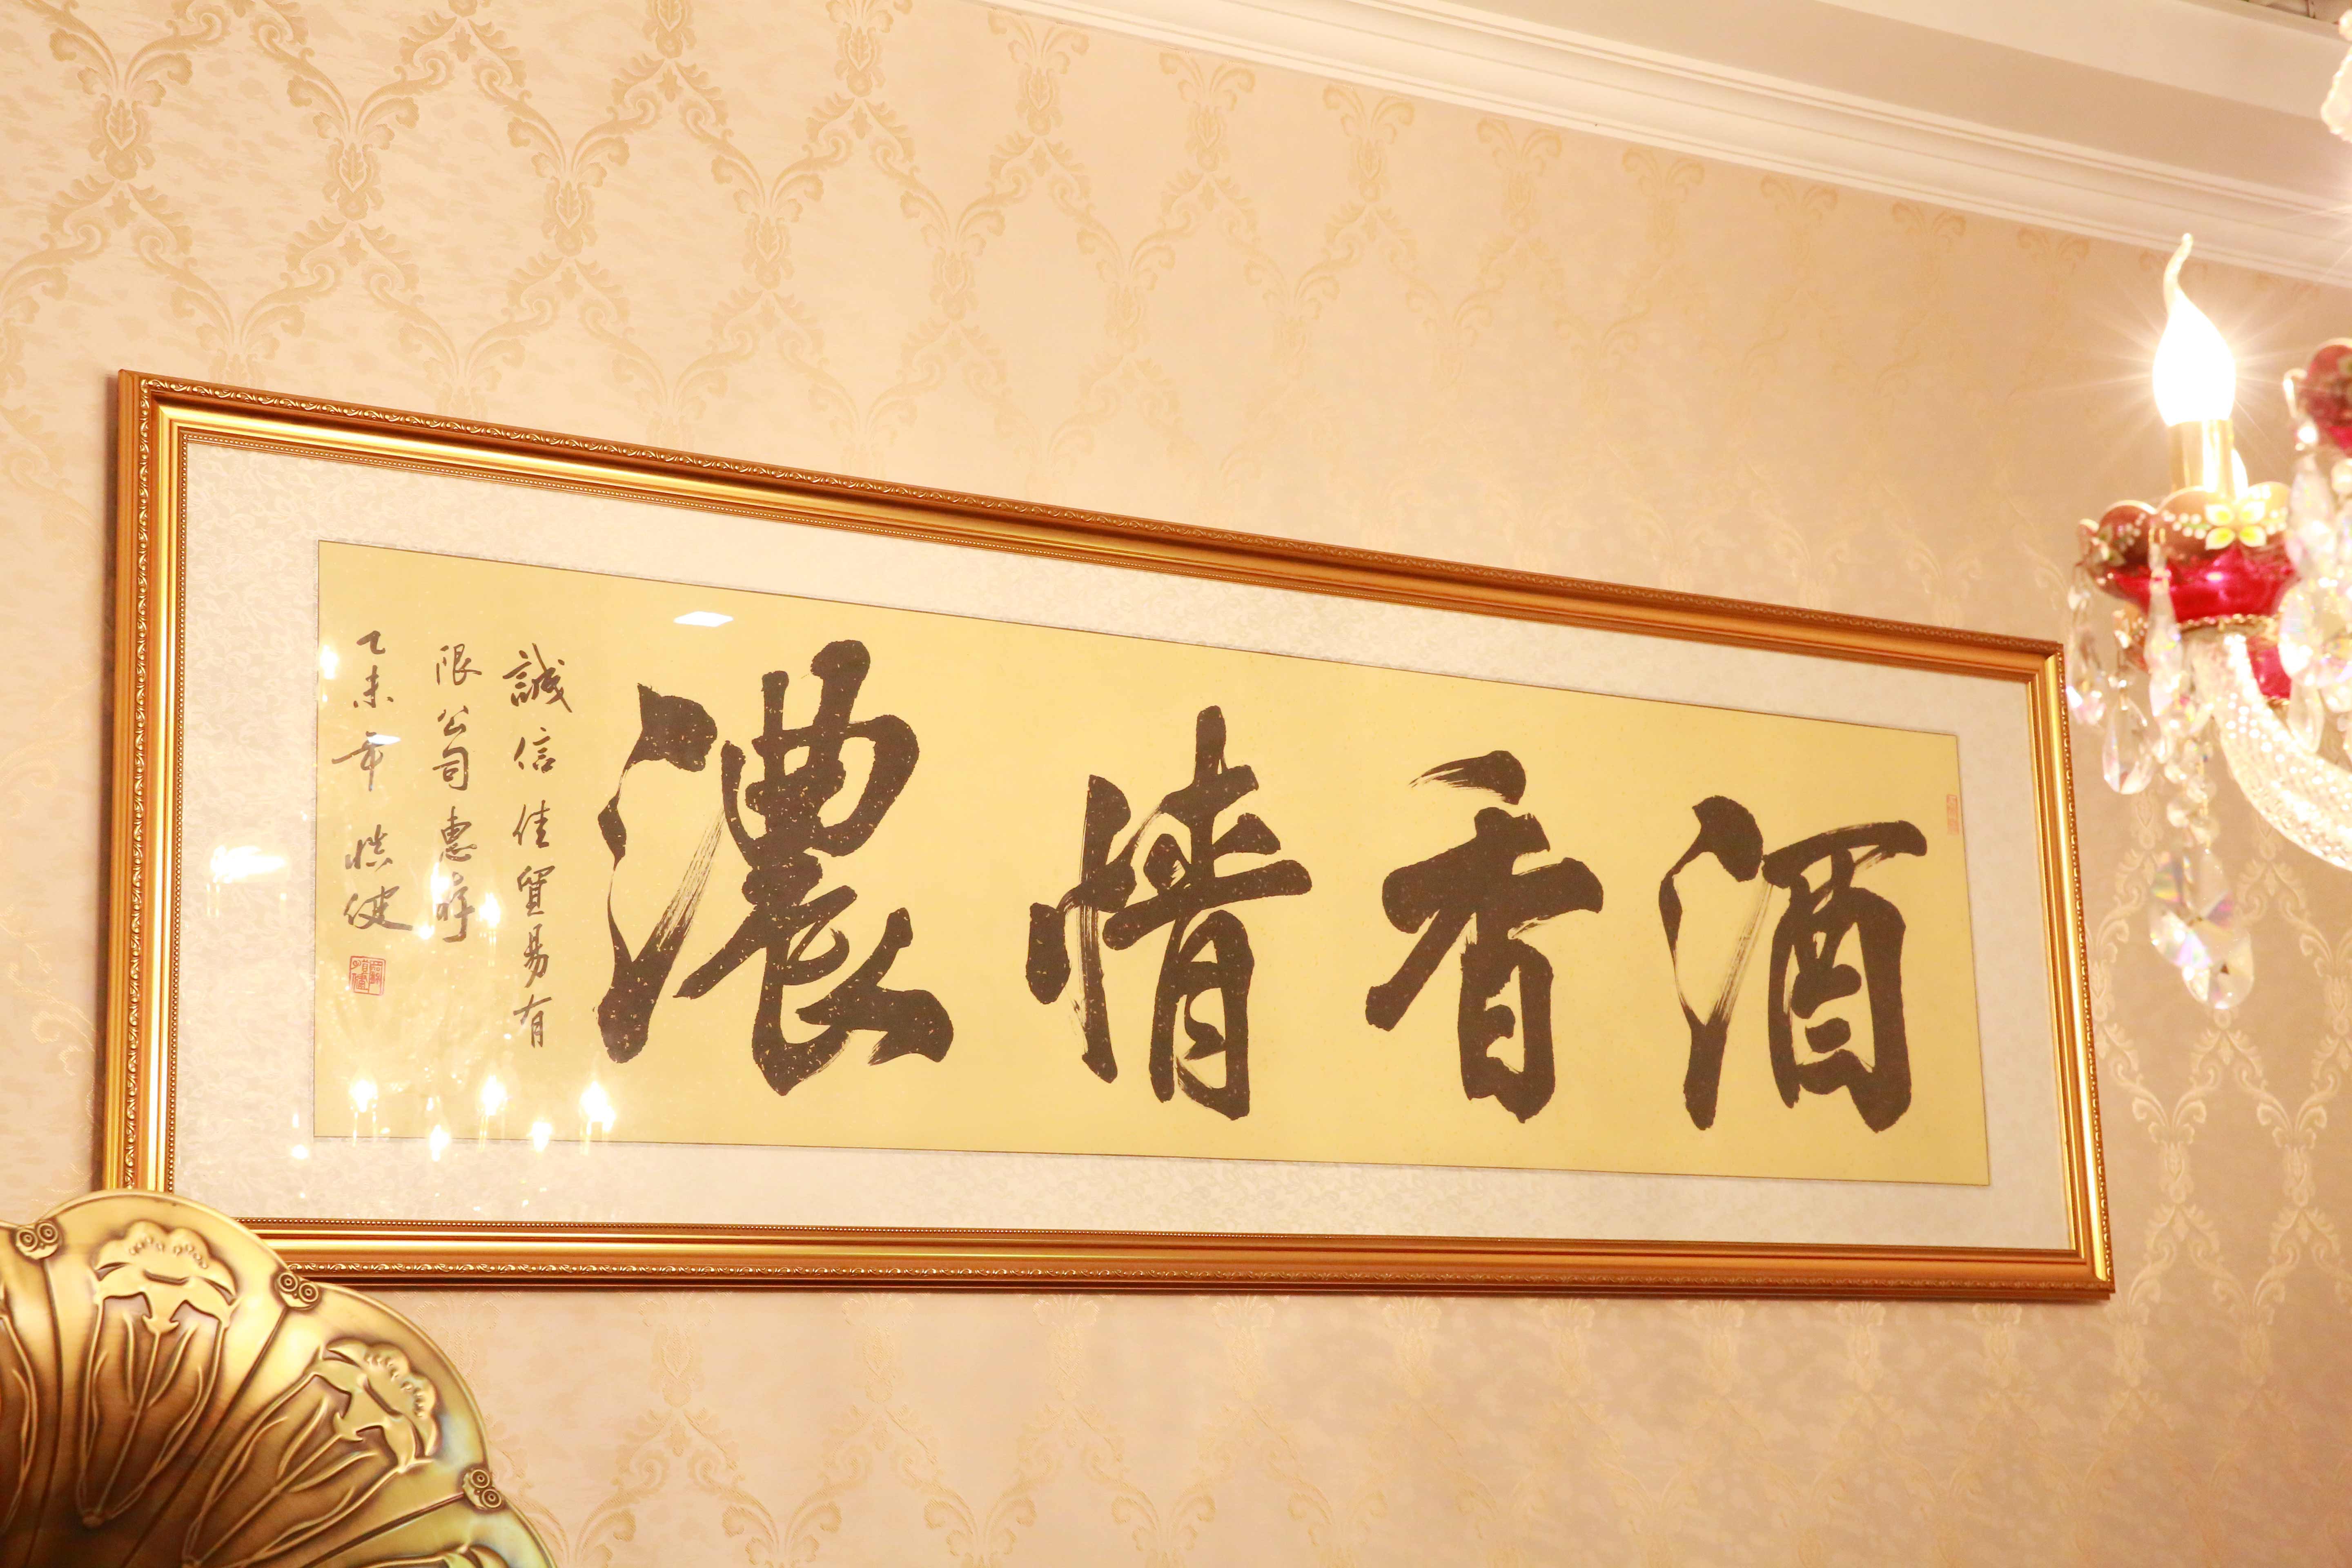 酒香情濃
誠信佳貿易有
限公司惠存
乙未年 慎健